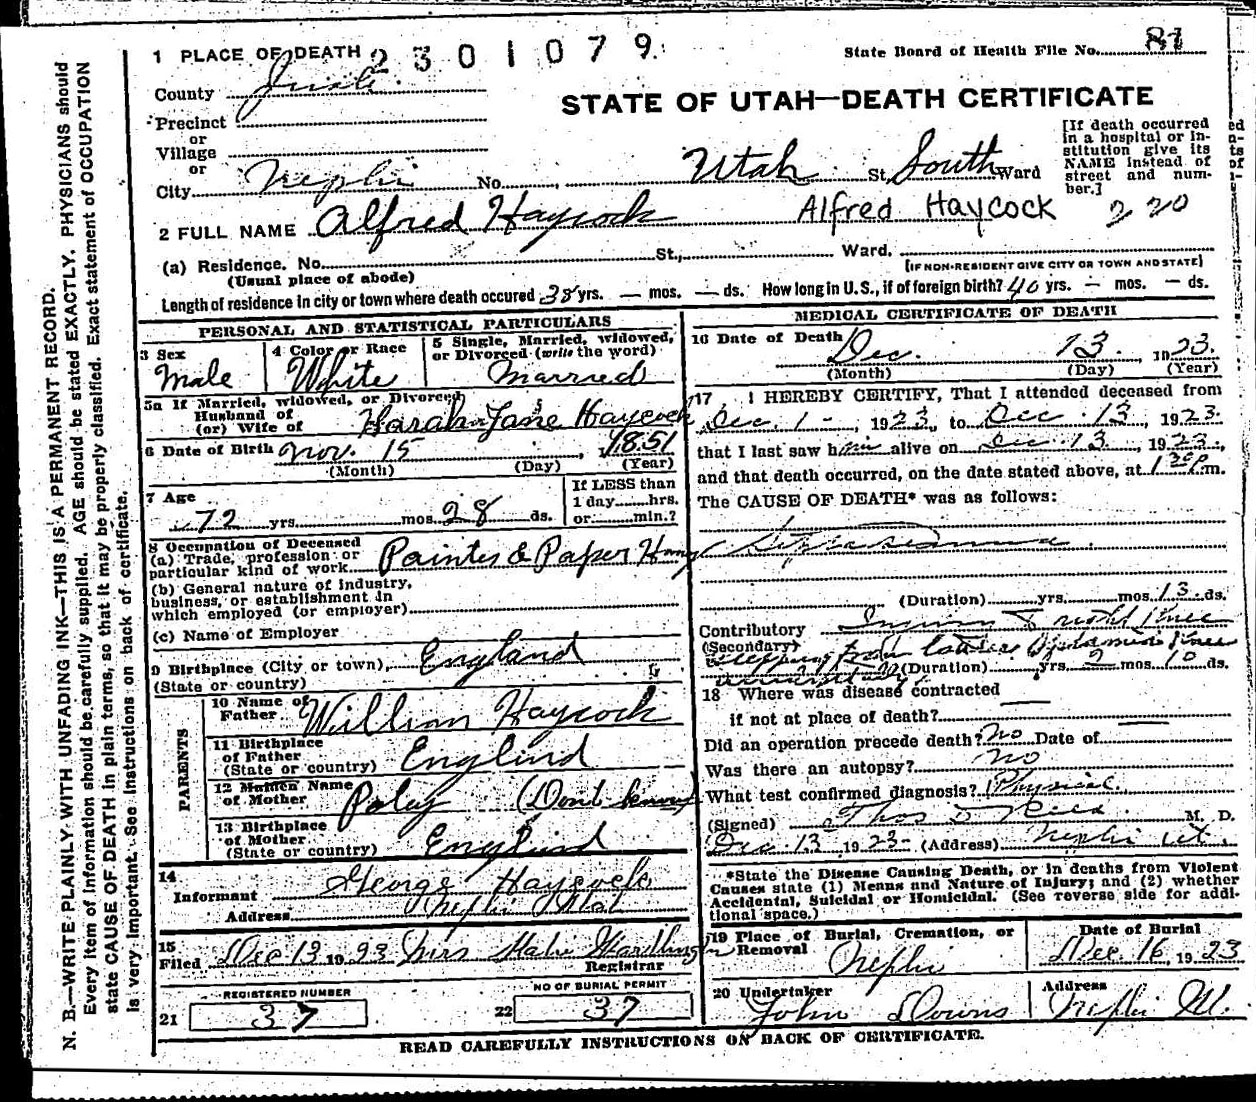 1 PLACE OF DEATH 2301079
State Board of Health File No. 81
County Juab
STATE OF UTAH—DEATH CERTIFICATE
Precinct
or
Village
or
City Nephi No. Utah St. South Ward
[If death occurred in a hospital or institution give its NAME instead of street and number.]
2 FULL NAME Alfred Haycock Alfred Haycock 220
(a) Residence. No. St., Ward.
(Usual place of abode) [IF NON-RESIDENT GIVE CITY OR TOWN AND STATE]
Length of residence in city or town where death occured 38 yrs. — mos. — ds. How long in U.S., if of foreign birth? 40 yrs. — mos. — ds.
PERSONAL AND STATISTICAL PARTICULARS
3 Sex Male
4 Color or Race White
5 Single, Married, widowed, or Divorced (write the word) Married
5a If Married, widowed, or Divorced
Husband of
(or) Wife of Sarah Jane Haycock
6 Date of Birth Nov. 15, 1851
(Month) (Day) (Year)
7 Age 72 yrs. mos. 28 ds.
If LESS than
1 day hrs.
or min.?
8 Occupation of Deceased
(a) Trade, profession or
particular kind of work Painter & Paper Hang
(b) General nature of industry,
business, or establishment in
which employed (or employer)
(c) Name of Employer
9 Birthplace (City or town), England
(State or country)
PARENTS
10 Name of
Father William Haycock
11 Birthplace
of Father
(State or country) England
12 Maiden Name
of Mother (Dont know)
13 Birthplace
of Mother
(State or country) England
14
Informant George Haycock
Address Nephi Utah
15
Filed Dec 13 1923 Mrs
Registrar
REGISTERED NUMBER
21 37
NO OF BURIAL PERMIT
22 37
MEDICAL CERTIFICATE OF DEATH
16 Date of Death Dec. 13, 1923.
(Month) (Day) (Year)
17 I HEREBY CERTIFY, That I attended deceased from
Dec. 1 -, 1923, to Dec 13, 1923.
that I last saw him alive on Dec 13, 1923,
and that death occurred, on the date stated above, at m.
The CAUSE OF DEATH* was as follows:
(Duration) yrs. mos. 13 ds.
Contributory Injury to right knee
(Secondary) from ladder knee
(Duration) yrs. 2 mos. 10 ds.
18 Where was disease contracted
if not at place of death?
Did an operation precede death? No Date of
Was there an autopsy? No
What test confirmed diagnosis? Physical
(Signed) Thos M. D.
Dec 13 1923 (Address) Nephi Ut.
*State the Disease Causing Death, or in deaths from Violent
Causes state (1) Means and Nature of Injury; and (2) whether
Accidental, Suicidal or Homicidal. (See reverse side for addi-
tional space.)
19 Place of Burial, Cremation, or
Removal Nephi
Date of Burial
Dec. 16, 1923
20 Undertaker
John Downs
Address
Nephi Ut.
READ CAREFULLY INSTRUCTIONS ON BACK OF CERTIFICATE.
N. B.—WRITE PLAINLY WITH UNFADING INK—THIS IS A PERMANENT RECORD.
Every item of Information should be carefully supplied. AGE should be stated EXACTLY. PHYSICIANS should
state CAUSE OF DEATH in plain terms, so that it may be properly classified. Exact statement of OCCUPATION
is very important. See Instructions on back of certificate.